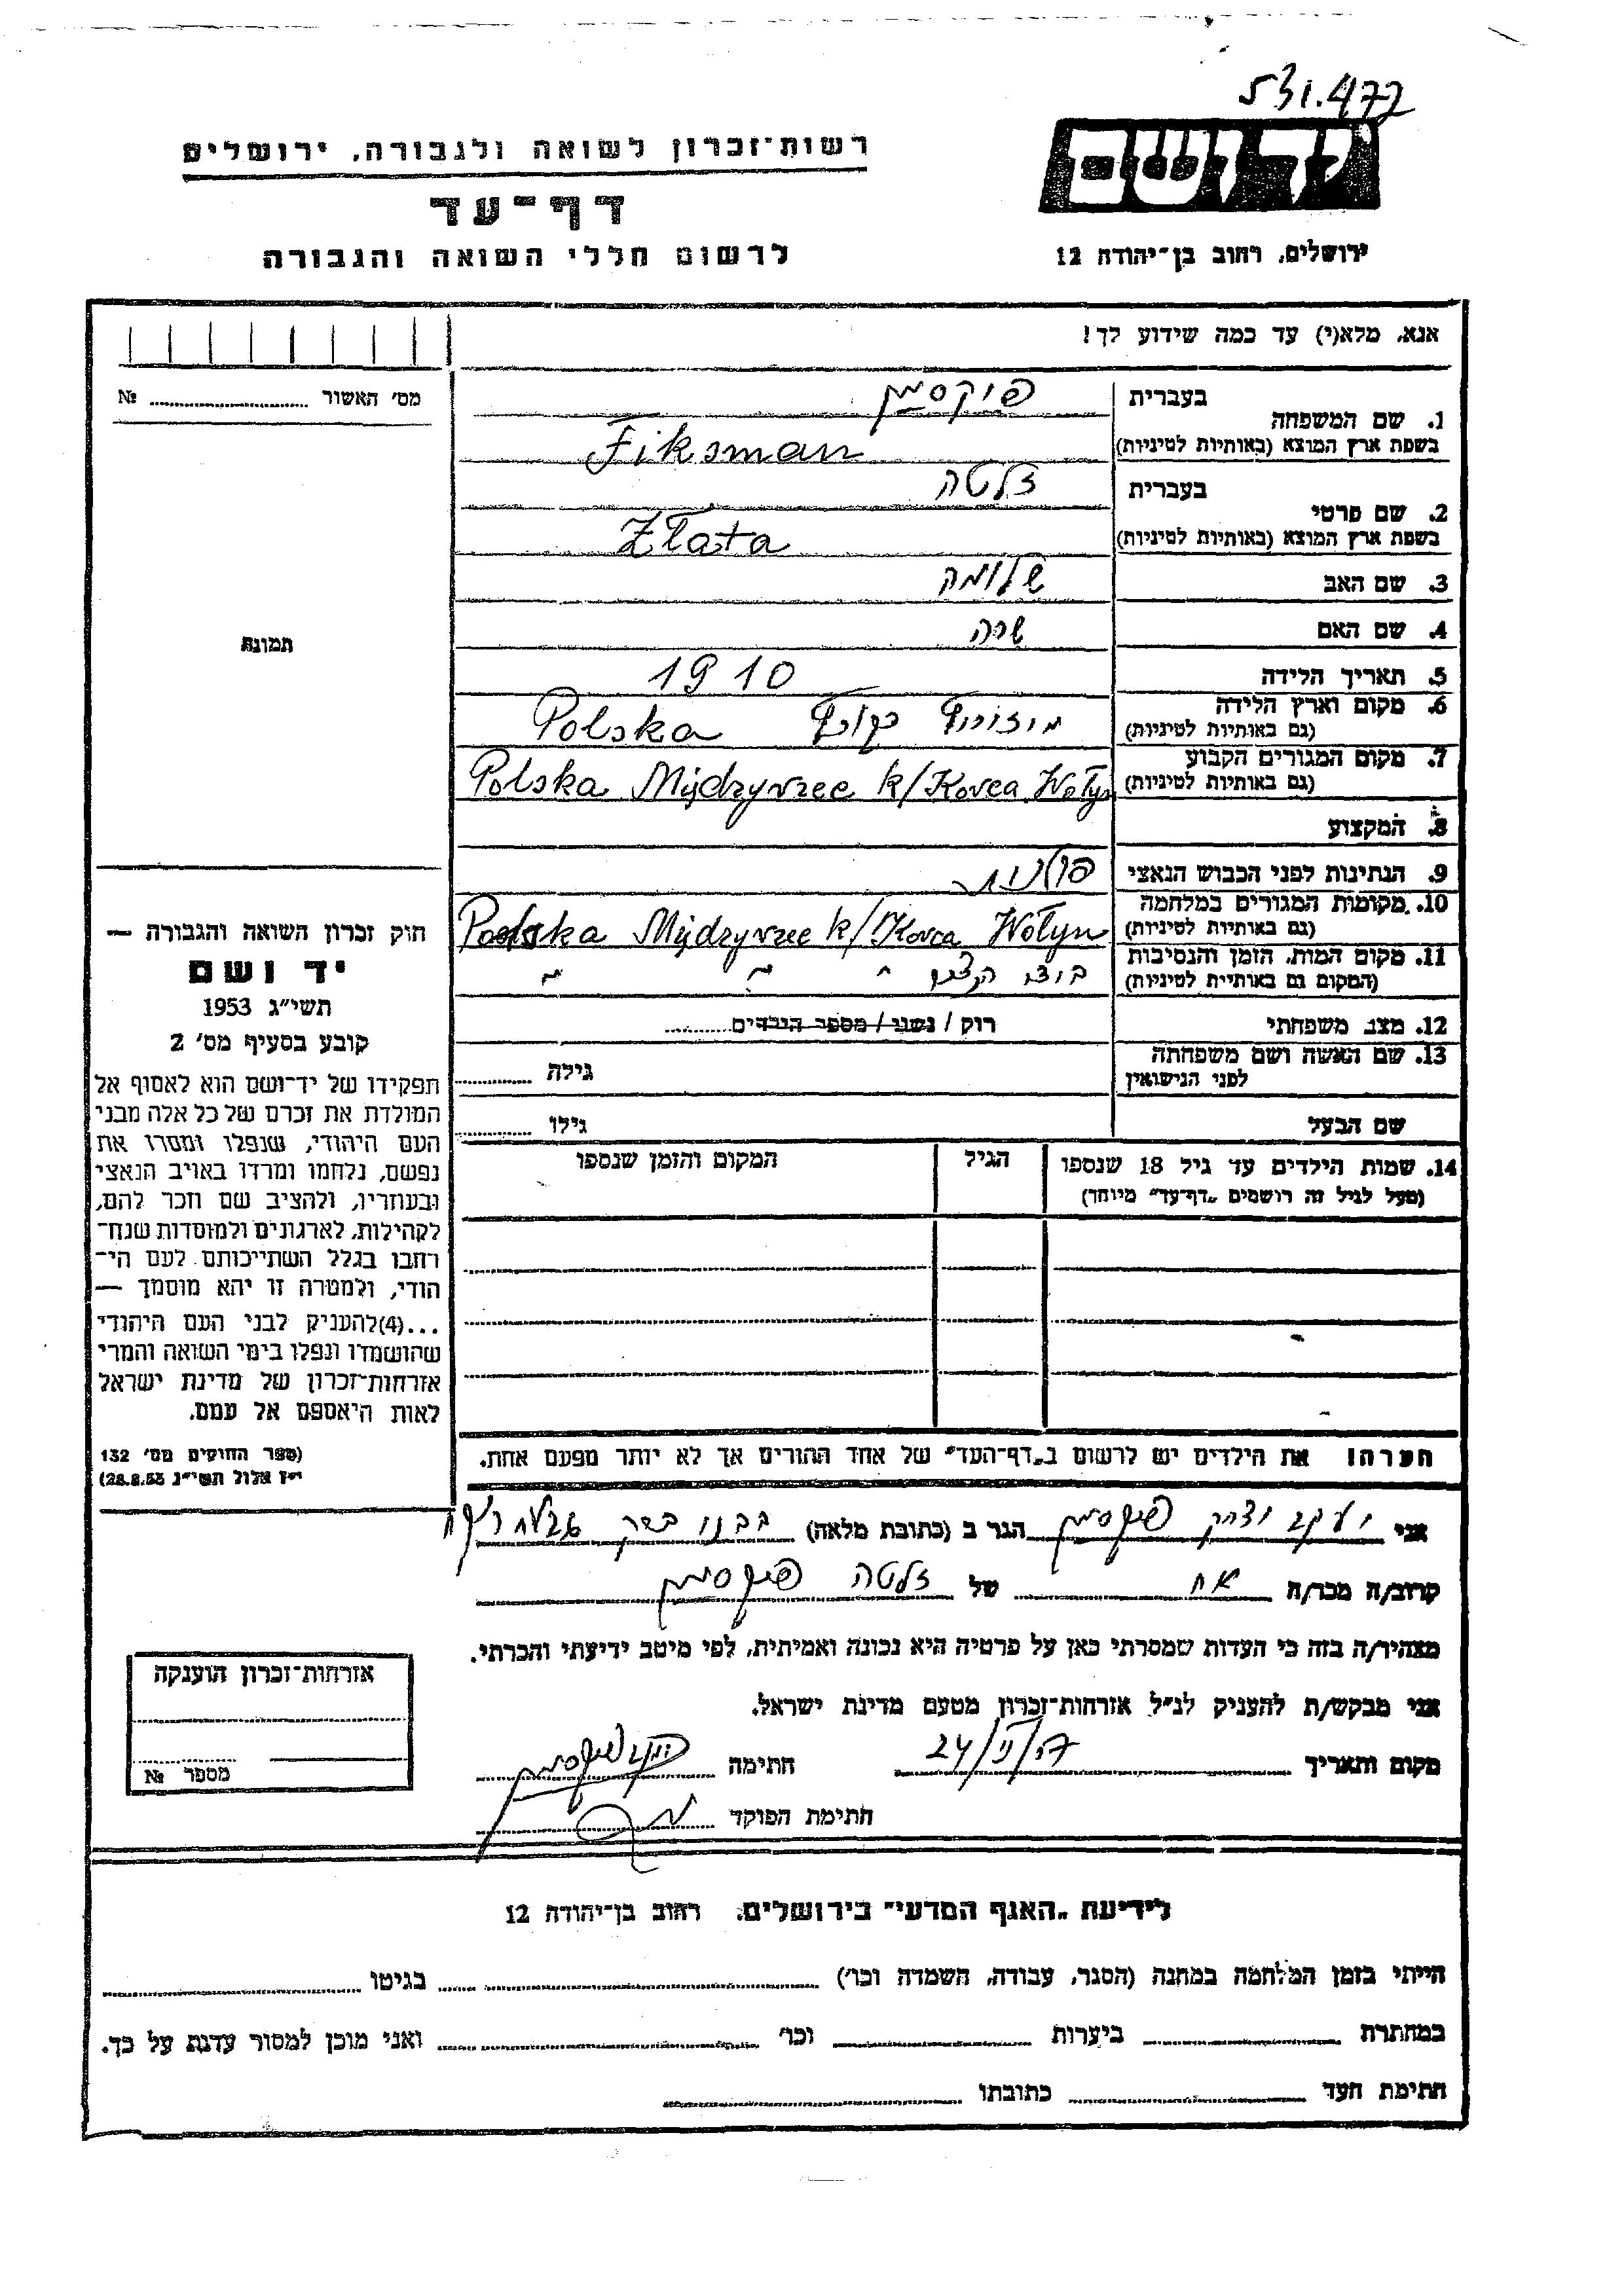 531.472
יד ושם
רשות־זכרון לשואה ולגבורה, ירושלים
דף־עד
לרשום חללי השואה והגבורה
ירושלים, רחוב בן־יהודה 12
אנא, מלא(י) עד כמה שידוע לך!
מס׳ האשור № 
1. שם המשפחה
בעברית פיקסמן
בשפת ארץ המוצא (באותיות לטיניות) Fiksman
2. שם פרטי
בעברית זלטה
בשפת ארץ המוצא (באותיות לטיניות) Złata
3. שם האב שלומה
4. שם האם שרה
תמונה
5. תאריך הלידה 1910
6. מקום וארץ הלידה
(גם באותיות לטיניות) Polska
7. מקום המגורים הקבוע
(גם באותיות לטיניות) Polska Międzyrzec k/Korca Wołyn
8. המקצוע
9. הנתינות לפני הכבוש הנאצי פולנית
10. מקומות המגורים במלחמה
(גם באותיות לטיניות) Polska Międzyrzec k/Korca Wołyn
11. מקום המות, הזמן והנסיבות
(המקום גם באותיית לטיניות)
12. מצב משפחתי רוק / נשוי / מספר הילדים
13. שם האשה ושם משפחתה
לפני הנישואין גילה
שם הבעל גילו
14. שמות הילדים עד גיל 18 שנספו
(מעל לגיל זה רושמים „דף־עד״ מיוחד)
הגיל
המקום והזמן שנספו
חוק זכרון השואה והגבורה —
יד ושם
תשי״ג 1953
קובע בסעיף מס׳ 2
תפקידו של יד־ושם הוא לאסוף אל
המולדת את זכרם של כל אלה מבני
העם היהודי, שנפלו ומסרו את
נפשם, נלחמו ומרדו באויב הנאצי
ובעוזריו, ולהציב שם וזכר להם,
לקהילות, לארגונים ולמוסדות שנח־
רחבו בגלל השתייכותם לעם הי־
הודי, ולמטרה זו יהא מוסמך —
...(4)להעניק לבני העם היהודי
שהושמדו ונפלו בימי השואה והמרי
אזרחות־זכרון של מדינת ישראל
לאות היאספם אל עמם.
(ספר החוקים מס׳ 132
י״ז אלול תשי״ג 28.8.53)
הערה! את הילדים יש לרשום ב„דף־העד״ של אחד ההורים אך לא יותר מפעם אחת.
אני יעקב יצחק פיקסמן הגר ב (כתובת מלאה)
קרוב/ה מכר/ה אח של זלטה פיקסמן
מצהיר/ה בזה כי העדות שמסרתי כאן על פרטיה היא נכונה ואמיתית, לפי מיטב ידיעתי והכרתי.
אני מבקש/ת להעניק לנ״ל אזרחות־זכרון מטעם מדינת ישראל.
מקום ותאריך חתימה
חתימת הפוקד
אזרחות־זכרון הוענקה
מספר №
לידיעת „האגף המדעי״ בירושלים, רחוב בן־יהודה 12
הייתי בזמן המלחמה במחנה (הסגר, עבודה, השמדה וכו׳) בגיטו
במחתרת ביערות וכו׳ ואני מוכן למסור עדות על כך.
חתימת העד כתובתו